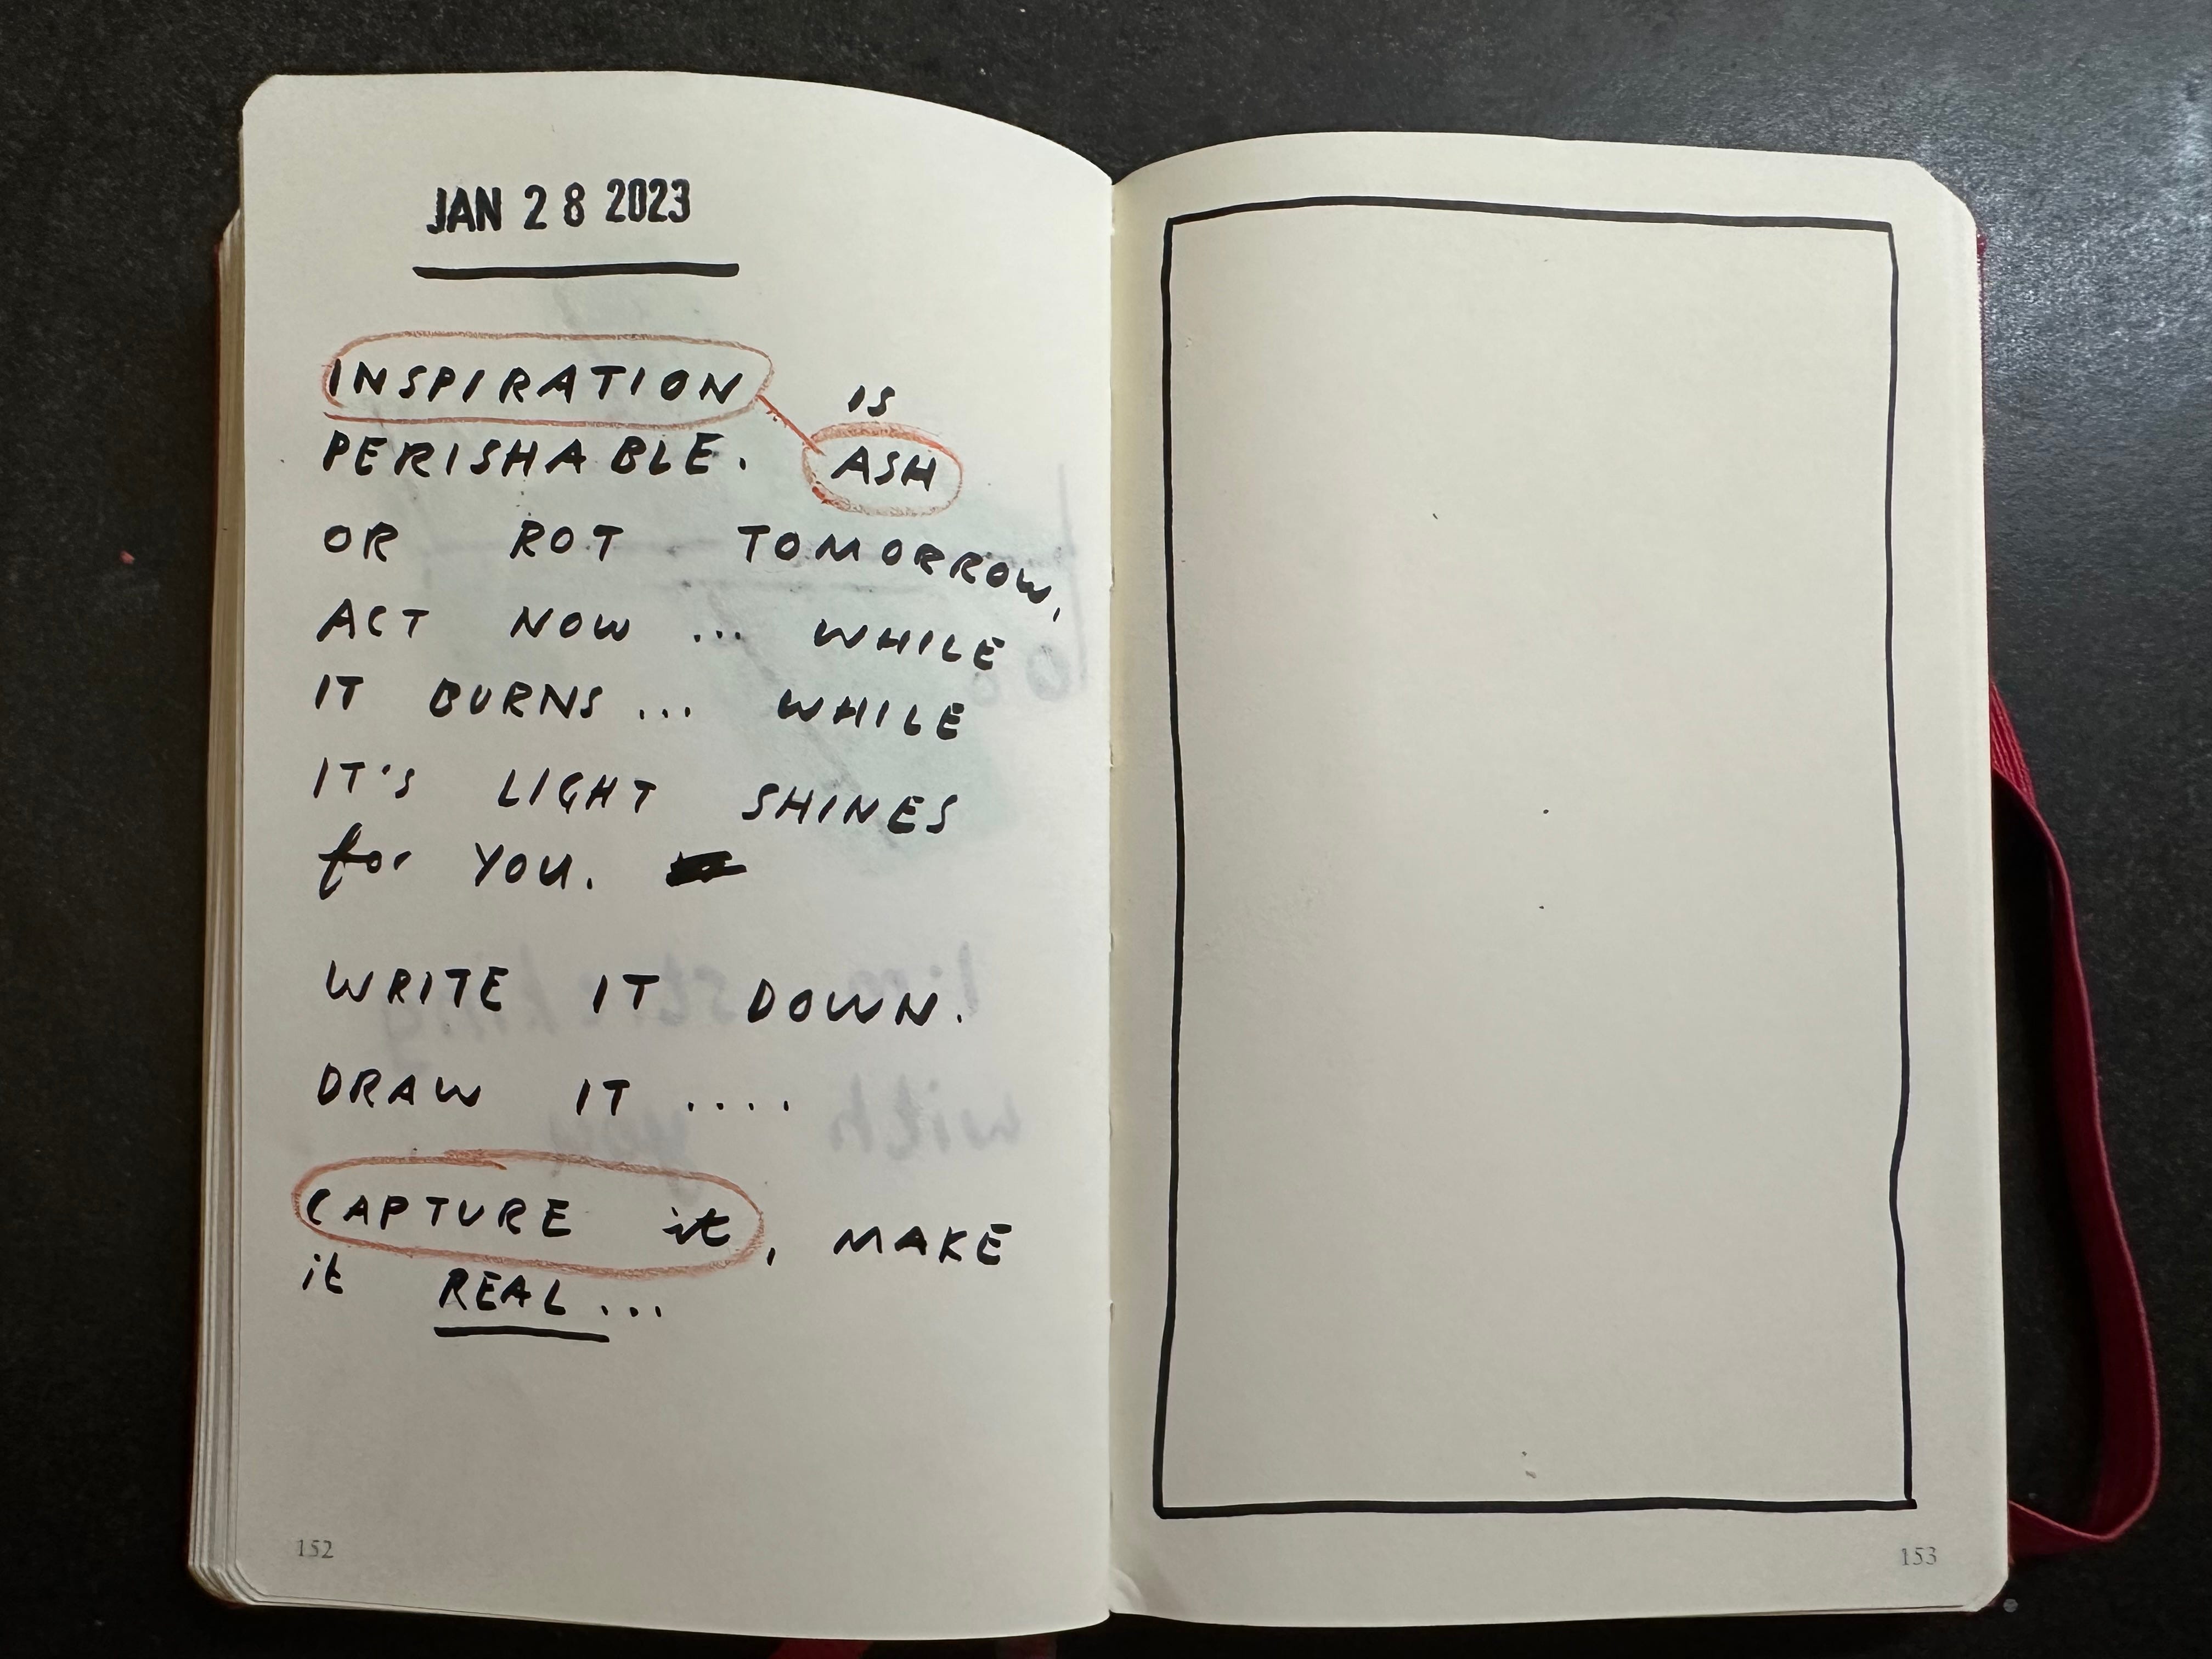 JAN 28 2023
INSPIRATION IS
PERISHABLE. ASH
OR ROT TOMORROW,
ACT NOW ... WHILE
IT BURNS ... WHILE
IT'S LIGHT SHINES
for YOU.
WRITE IT DOWN.
DRAW IT ....
CAPTURE it, MAKE
it REAL...
152
153